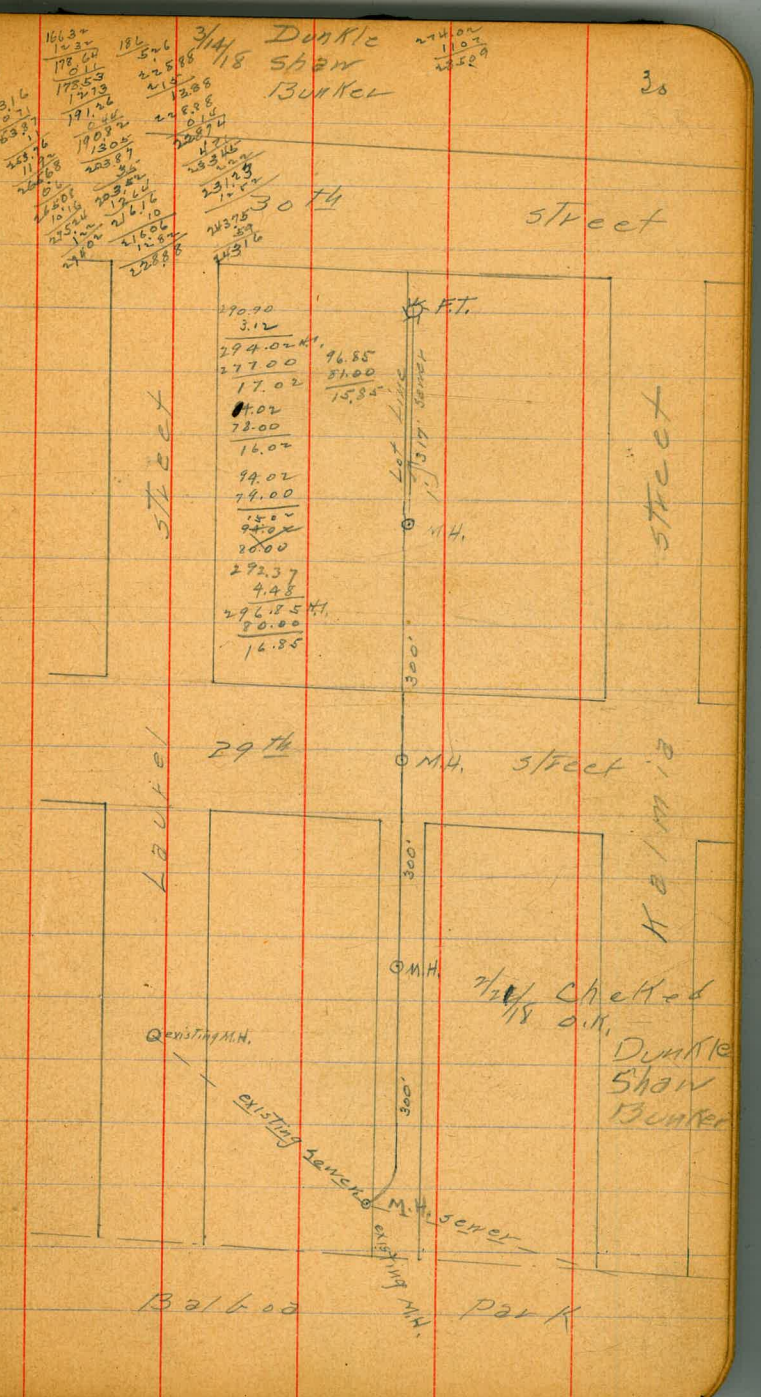 3/14/18 Dunkle
Shaw
Bunker
30
274.02
1107
16632
1232
178.64
011
178.53
1273
191.26
0.44
190.82
1305
203.87
35
203.52
12.64
216.16
10
216.06
12.82
228.88
186
526
225.88
215
13.88
228.88
0.14
228.74
233.45
222
231.23
12.52
243.75
59
243.16
30th street
290.90
3.12
294.02 H.I.
277.00
17.02
96.85
81.00
15.85
78.00
16.02
94.02
79.00
15.02
94.02
80.00
292.37
4.48
296.85 H.I.
80.00
16.85
F.T.
Lot Line
317' sewer
M.H.
300'
street
street
29th
M.H.
street
Laurel
Kalmia
300'
M.H.
existing M.H.
Cheked
O.K.
Dunkle
Shaw
Bunker
300'
existing sewer
M.H. sewer
existing M.H.
Balboa Park